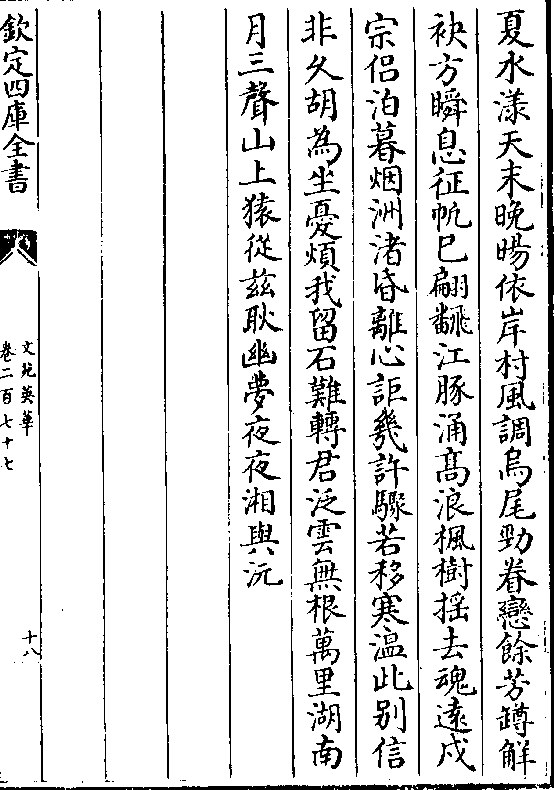 夏水漾天末晚暘依岸村風調烏尾勁眷戀餘芳罇解
袂方瞬息征帆已翩飜江豚涌髙浪楓樹揺去魂逺戍
宗侣泊暮烟洲渚昏離心詎幾許驟若移寒温此别信
非久胡為坐憂煩我留石難轉君泛雲無根萬里湖南
月三聲山上猿從兹耿幽夢夜夜湘與沅
欽定四庫全書
文苑英華
卷二百七十七
十八